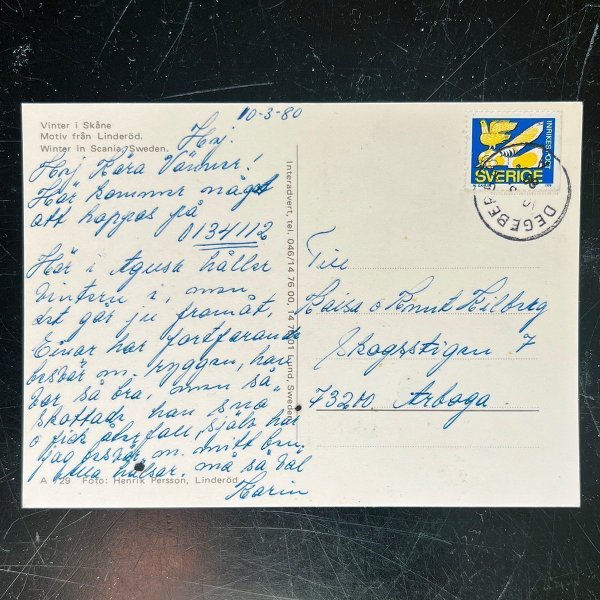 10-3-80
Vinter i Skåne
Motiv från Linderöd.
Winter in Scania, Sweden.
Hej.
Hej Kära Vänner!
Här kommer något
att hoppas på
0134112
Här i Agusa håller
vintern i, men
det går ju framåt,
Einar har fortfarande
besvär m. ryggen, han
var så bra, men så
skottade han snö
o fick återfall, själv har
jag besvär m. mitt ben.
alla hälsar, må så väl
Karin
A 129 Foto: Henrik Persson, Linderöd
Interadvert, tel. 046/14 76 00, 14 76 01 Lund, Sweden
INRIKES POST
SVERIGE
DEGEBERGA
Till
Kaisa o Knut Kilberg
Skogsstigen 7
73200 Arboga